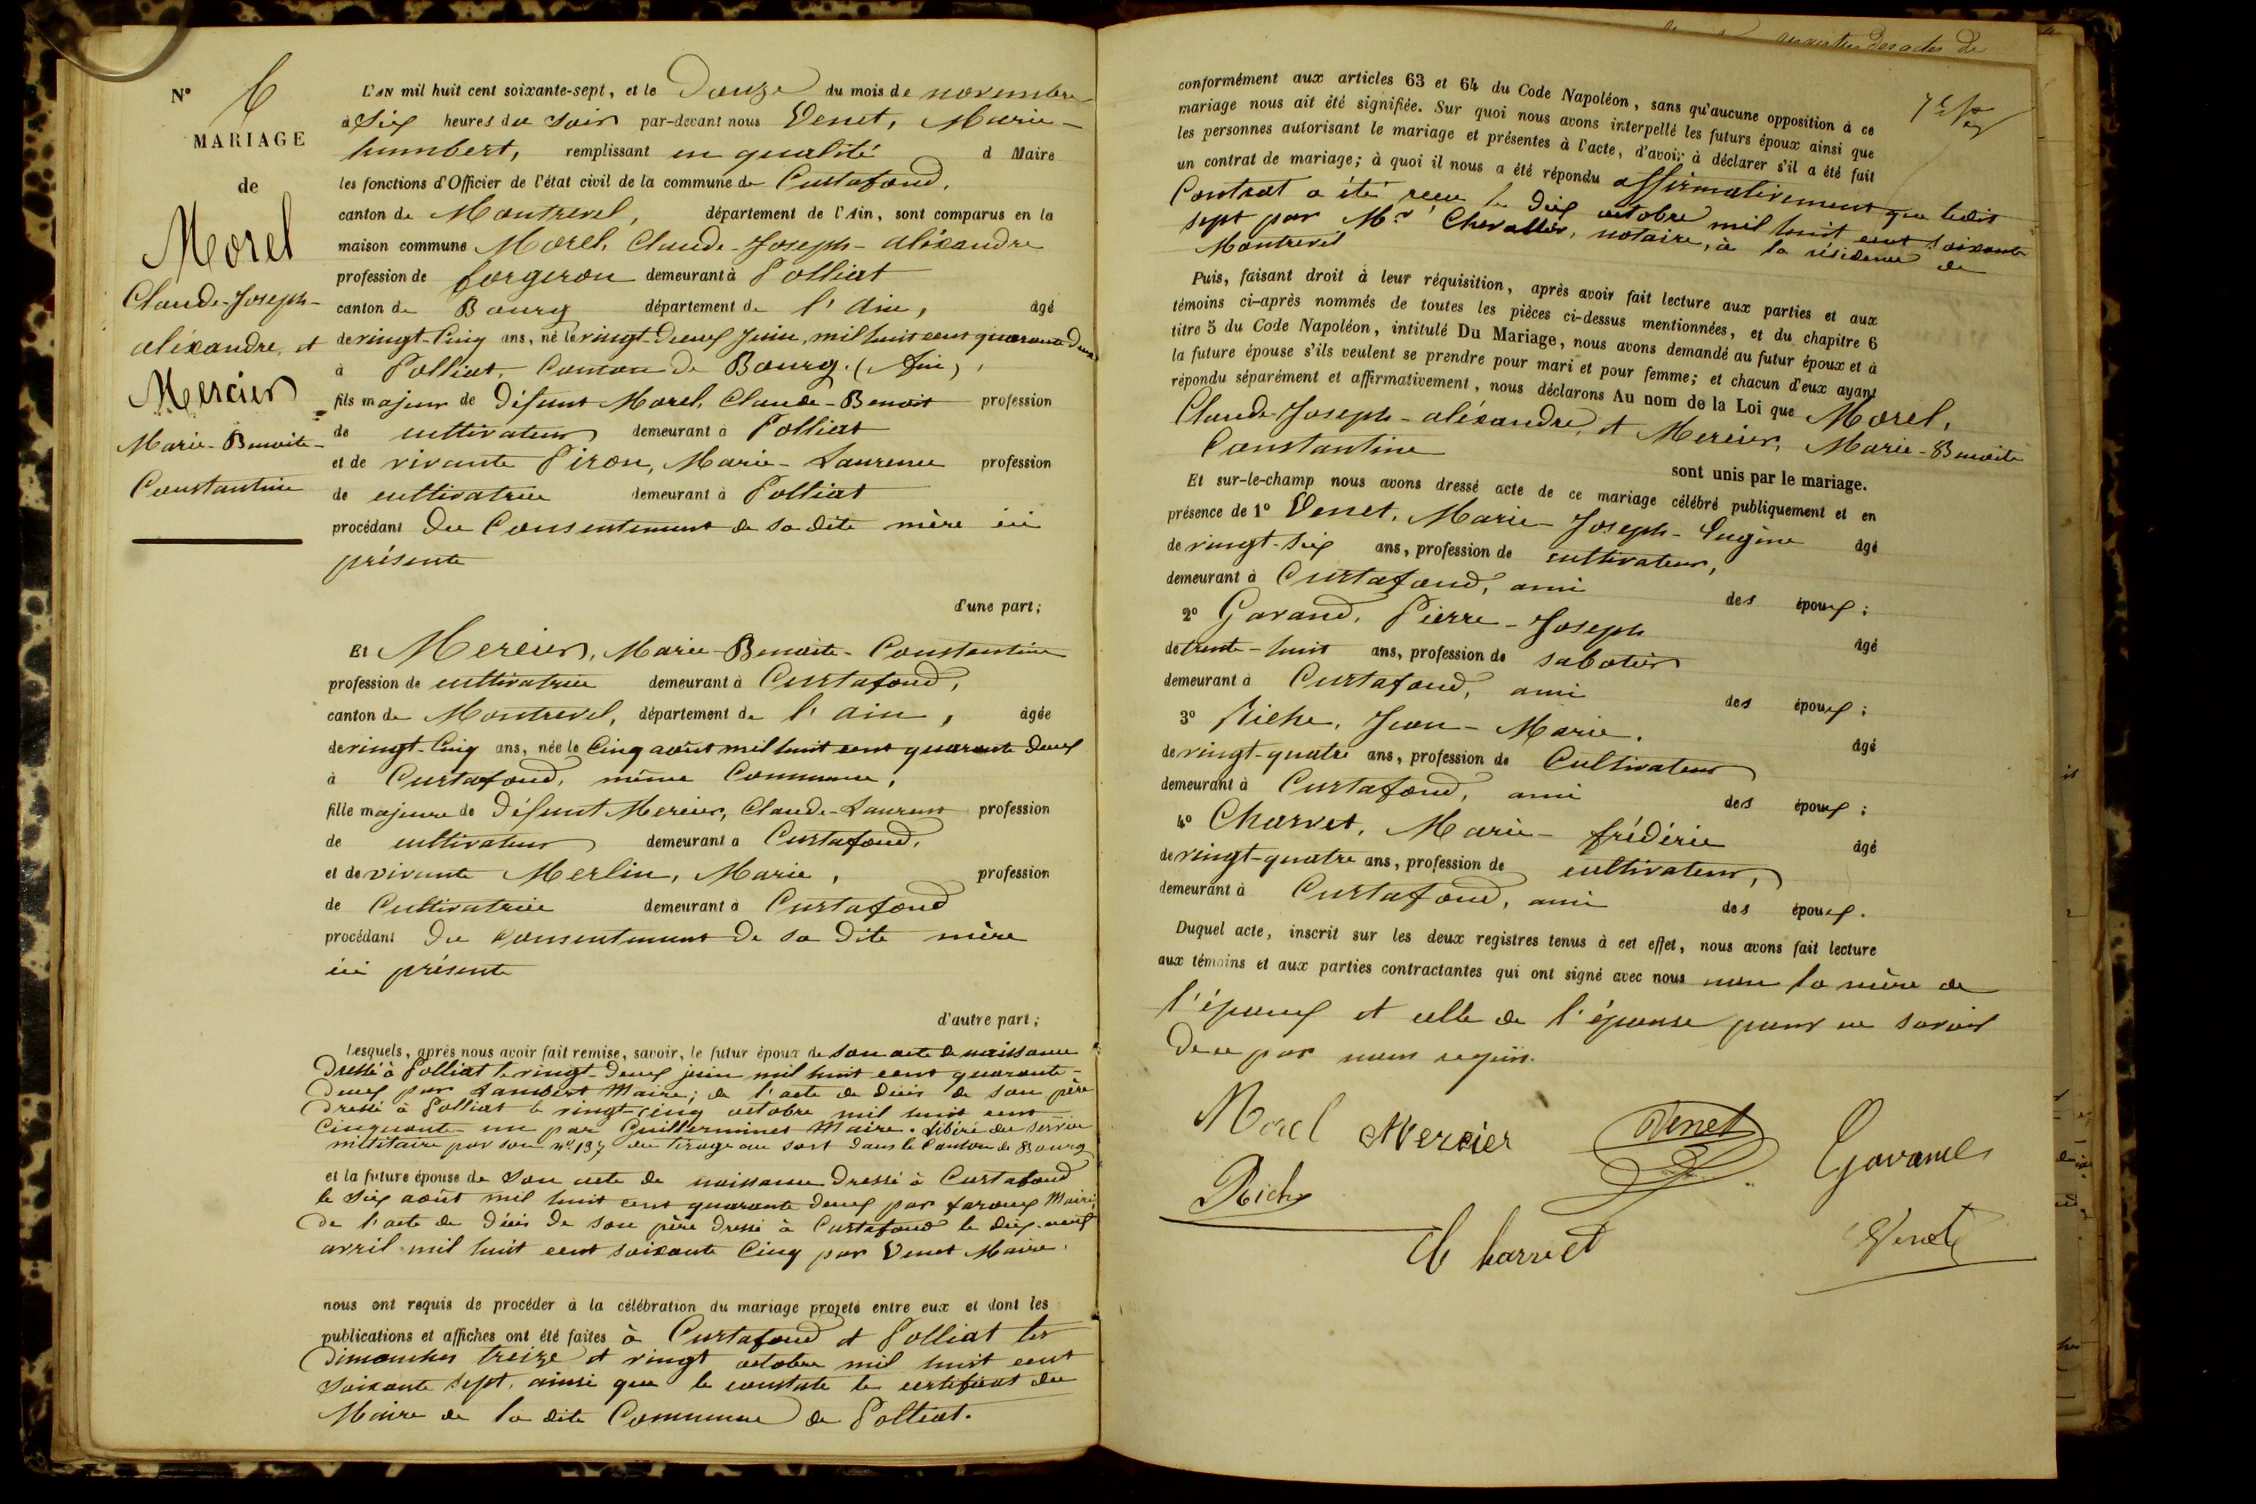 N° 6
MARIAGE
de
Morel
Claude-Joseph-
aléxandre, et
Mercier
Marie-Benoite-
Constantine
L'AN mil huit cent soixante-sept, et le Douze du mois de novembre
à Six heures du soir par-devant nous Venet, Marie-
humbert, remplissant en qualité d Maire
les fonctions d'Officier de l'état civil de la commune de Curtafond,
canton de Montrevel, département de l'Ain, sont comparus en la
maison commune Morel, Claude-Joseph-aléxandre
profession de forgeron demeurant à Polliat
canton de Bourg département de l'Ain, âgé
de vingt-Cinq ans, né le vingt-Deux Juin, mil huit cent quarante Deux
à Polliat, Canton de Bourg. (Ain),
fils majeur de Défunt Morel, Claude-Benoit profession
de cultivateur demeurant à Polliat
et de vivante Piron, Marie-Laurence profession
de cultivatrice demeurant à Polliat
procédant Du Consentement de sa dite mère ici
présente
d'une part;
Et Mercier, Marie-Benoite-Constantine
profession de cultivatrice demeurant à Curtafond,
canton de Montrevel, département de l'ain, âgée
de vingt-Cinq ans, née le Cinq août mil huit cent quarante Deux
à Curtafond, même Commune,
fille majeure de Défunt Mercier, Claude-Laurent profession
de cultivateur demeurant à Curtafond,
et de vivante Merlin, Marie, profession
de Cultivatrice demeurant à Curtafond
procédant Du consentement De sa Dite mère
ici présente
d'autre part;
Lesquels, après nous avoir fait remise, savoir, le futur époux de son acte de naissance
Dressé à Polliat le vingt-Deux juin mil huit cent quarante-
Deux par Lambert Maire; de l'acte de Décès de son père
Dressé à Polliat le vingt-cinq octobre mil huit cent
Cinquante-un par Guillerminet Maire. Libéré du service
militaire par son n° 137 du tirage au sort dans le Canton de Bourg
et la future épouse de Son acte de naissance Dressé à Curtafond
le Six août mil huit cent quarante Deux par Maire;
De l'acte de Décès De son père Dressé à Curtafond le dix-neuf
avril mil huit cent soixante Cinq par Venet Maire.
nous ont requis de procéder à la célébration du mariage projeté entre eux et dont les
publications et affiches ont été faites à Curtafond et Polliat les
Dimanches treize et vingt octobre mil huit cent
soixante sept, ainsi que le constate le certificat du
Maire de la dite Commune de Polliat.
conformément aux articles 63 et 64 du Code Napoléon, sans qu'aucune opposition à ce
mariage nous ait été signifiée. Sur quoi nous avons interpellé les futurs époux ainsi que
les personnes autorisant le mariage et présentes à l'acte, d'avoir à déclarer s'il a été fait
un contrat de mariage; à quoi il nous a été répondu affirmativement que ledit
Contrat a été reçu le Dix octobre mil huit cent soixante
sept par Mr Chevallier, notaire, à la résidence de
Montrevel
Puis, faisant droit à leur réquisition, après avoir fait lecture aux parties et aux
témoins ci-après nommés de toutes les pièces ci-dessus mentionnées, et du chapitre 6
titre 5 du Code Napoléon, intitulé Du Mariage, nous avons demandé au futur époux et à
la future épouse s'ils veulent se prendre pour mari et pour femme; et chacun d'eux ayant
répondu séparément et affirmativement, nous déclarons Au nom de la Loi que Morel,
Claude-Joseph-aléxandre, et Mercier, Marie-Benoite
Constantine
sont unis par le mariage.
Et sur-le-champ nous avons dressé acte de ce mariage célébré publiquement et en
présence de 1° Venet, Marie-Joseph-Eugène âgé
de vingt-Six ans, profession de cultivateur,
demeurant à Curtafond, ami des époux;
2° Gavand, Pierre-Joseph âgé
de trente-huit ans, profession de sabotier
demeurant à Curtafond, ami des époux;
3° Riche, Jean-Marie. âgé
de vingt-quatre ans, profession de Cultivateur
demeurant à Curtafond, ami des époux;
4° Charvet, Marie-frédéric âgé
de vingt-quatre ans, profession de cultivateur,
demeurant à Curtafond, ami des époux.
Duquel acte, inscrit sur les deux registres tenus à cet effet, nous avons fait lecture
aux témoins et aux parties contractantes qui ont signé avec nous non la mère de
l'époux et celle de l'épouse pour ne savoir
De ce par nous requis.
Morel Mercier Venet Gavand
Riche
Charvet Venet